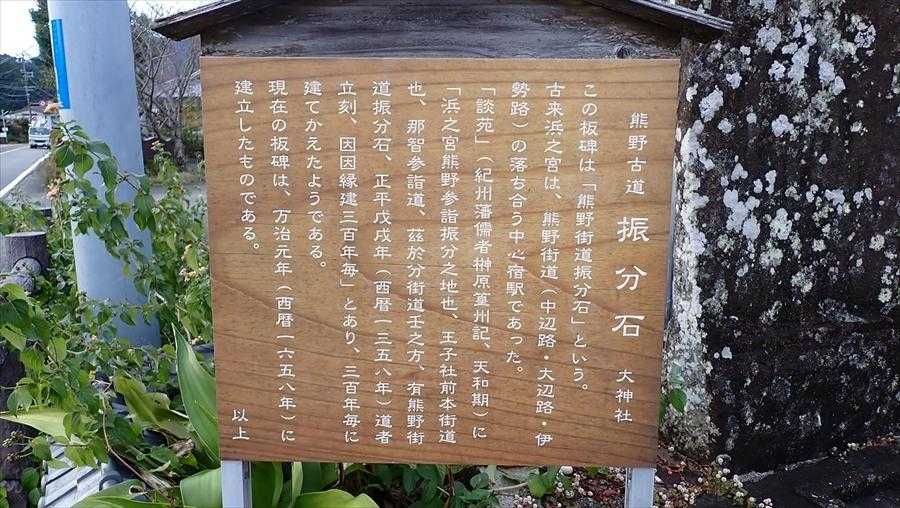 熊野古道 振分石 大神社
この板碑は「熊野街道振分石」という。
古来浜之宮は、熊野街道（中辺路・大辺路・伊
勢路）の落ち合う中心宿駅であった。
「談苑」（紀州藩儒者榊原篁州記、天和期）に
「浜之宮熊野参詣振分之地也、王子社前本街道
也、那智参詣道、茲於分街道壬之方、有熊野街
道振分石、正平戊戌年（西暦一三五八年）道者
立刻、因因縁建三百年毎」とあり、三百年毎に
建てかえたようである。
現在の板碑は、万治元年（西暦一六五八年）に
建立したものである。
以上